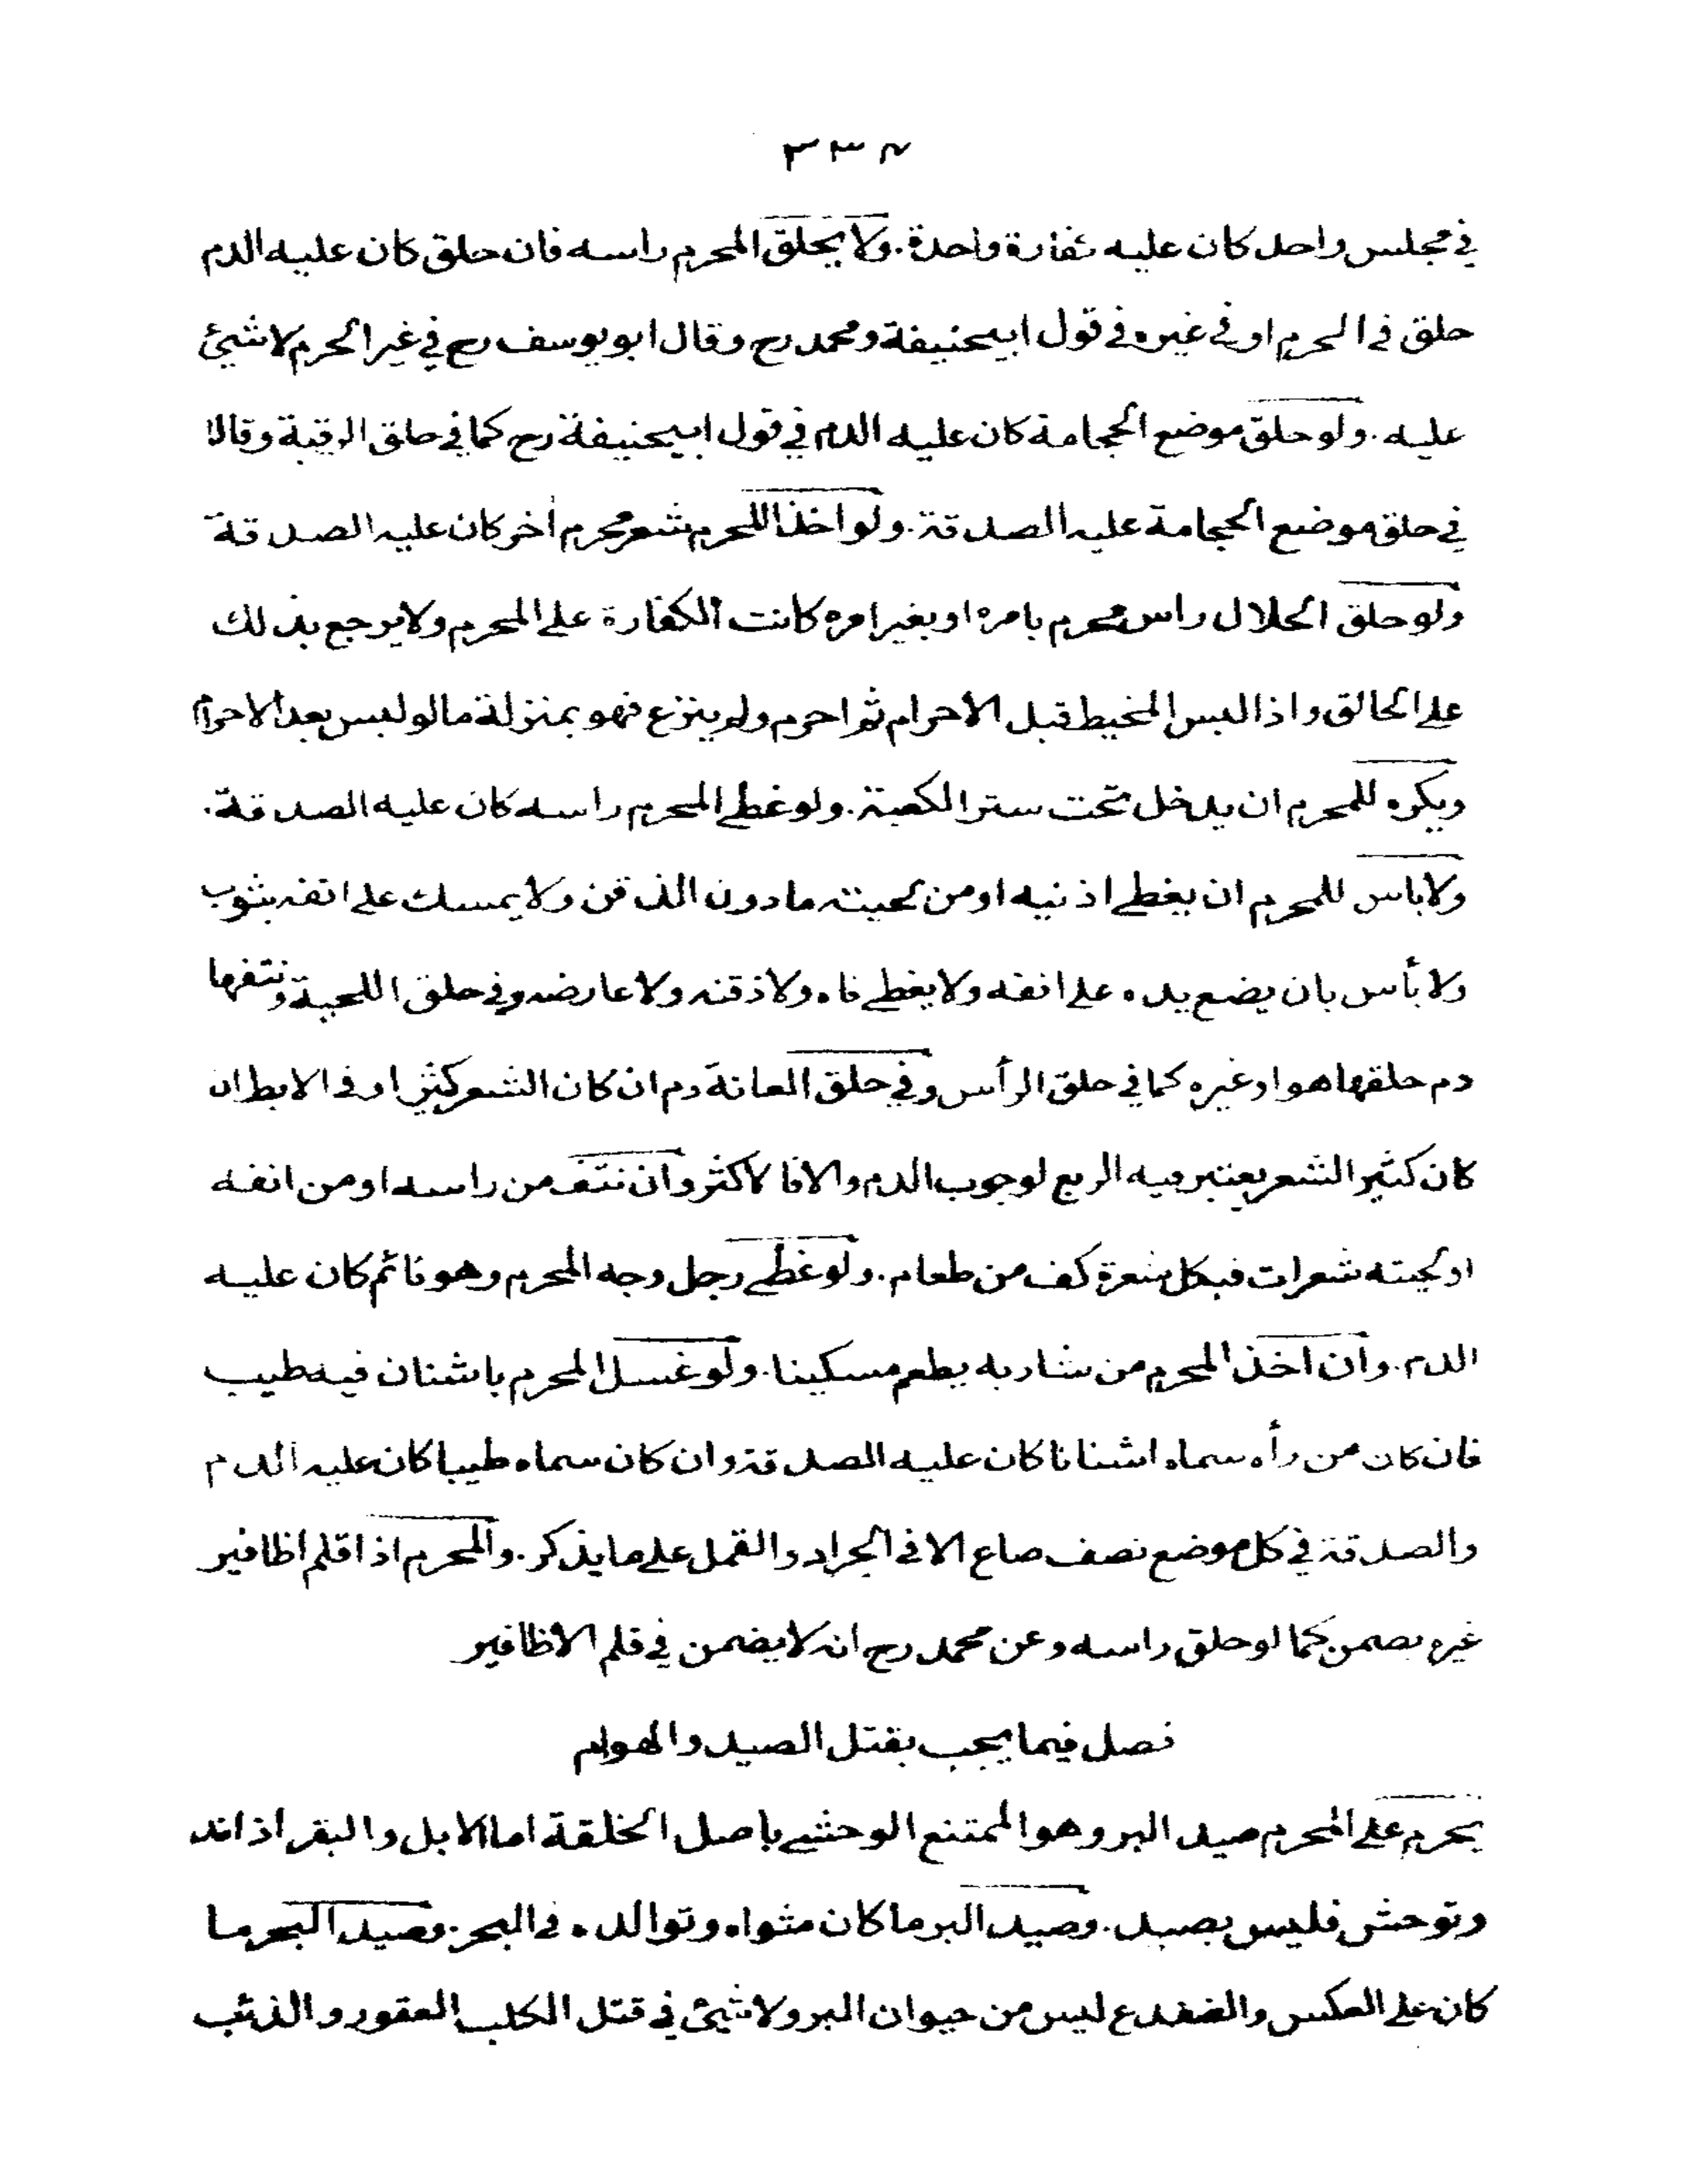 ٣٣٧
في مجلس واحد كان عليه كفارة واحدة. ولا يحلق المحرم راسه فان حلق كان عليه الدم
حلق في الحرم او في غيره في قول ابيحنيفة ومحمد رح وقال ابو يوسف رح في غير الحرم لا شيئ
عليه. ولو حلق موضع الحجامة كان عليه الدم في قول ابيحنيفة رح كما في حلق الرقبة وقالا
في حلق موضع الحجامة عليه الصدقة. ولو اخذ المحرم شعر محرم أخر كان عليه الصدقة
ولو حلق الحلال راس محرم بامره او بغير امره كانت الكفارة على المحرم ولا يرجع بذلك
على الحالق واذا لبس المخيط قبل الاحرام ثم احرم ولم ينزع فهو بمنزلة ما لو لبس بعد الاحرام
ويكره للمحرم ان يدخل تحت ستر الكعبة. ولو غطى المحرم راسه كان عليه الصدقة.
ولا باس للمحرم ان يغطى اذنيه او من لحيته ما دون الذقن ولا يمسك على انفه بثوب
ولا بأس بان يضع يده على انفه ولا يغطى فاه ولا ذقنه ولا عارضه وفي حلق اللحية ونتفها
دم حلقها هو او غيره كما في حلق الرأس وفي حلق العانة دم ان كان الشعر كثيرا وفي الابط ان
كان كثير الشعر يعتبر فيه الربع لوجوب الدم والا فالاكثر وان نتف من راسه او من انفه
او لحيته شعرات فبكل شعرة كف من طعام. ولو غطى رجل وجه المحرم وهو نائم كان عليه
الدم. وان اخذ المحرم من شاربه يطعم مسكينا. ولو غسل المحرم باشنان فيه طيب
فان كان من رأه سماه اشنانا كان عليه الصدقة وان كان سماه طيبا كان عليه الدم
والصدقة في كل موضع نصف صاع الا في الجراد والقمل على ما يذكر. والمحرم اذا قلم اظافير
غيره يضمن كما لو حلق راسه وعن محمد رح انه لا يضمن في قلم الاظافير
فصل فيما يجب بقتل الصيد والهوام
يحرم على المحرم صيد البر وهو الممتنع الوحشى باصل الخلقة اما الابل والبقر اذا ند
وتوحش فليس بصيد. وصيد البر ما كان مثواه وتوالده في البحر. وصيد البحر ما
كان على العكس والضفدع ليس من حيوان البر ولا شيئ في قتل الكلب العقور والذئب